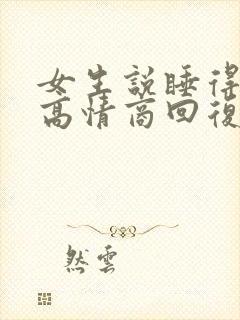 女生説睡得
高情商回復
然雲